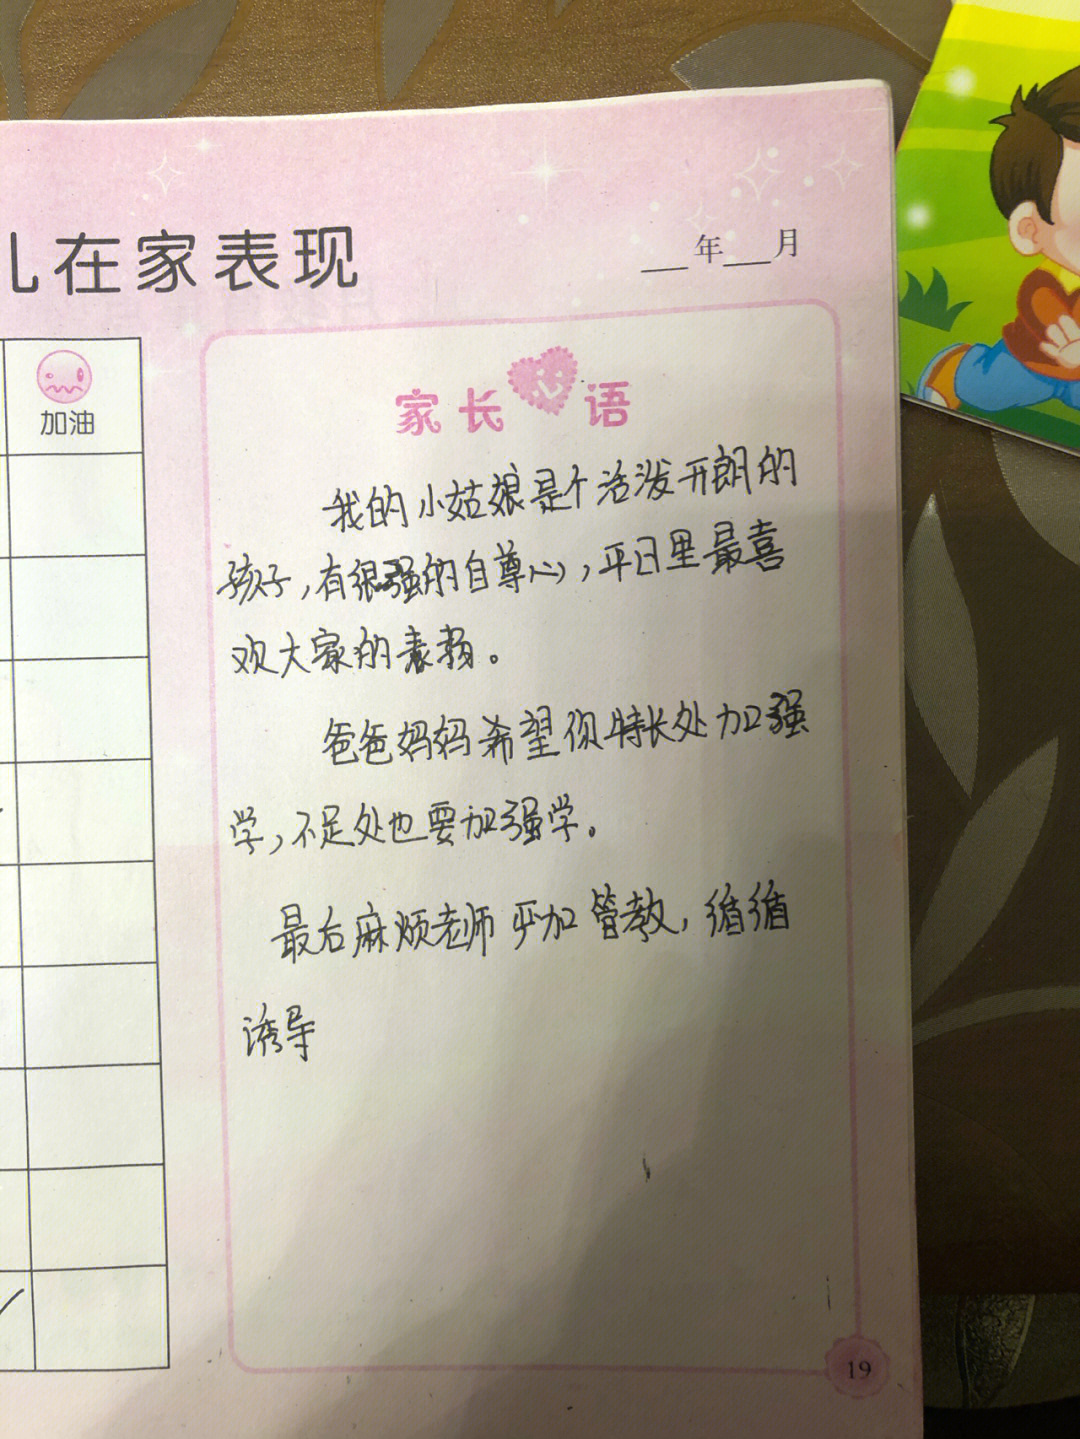 儿在家表现
__年__月
加油
家长心语
我的小姑娘是个活泼开朗的
孩子,有很强的自尊心,平日里最喜
欢大家的表扬。
爸爸妈妈希望你特长处加强
学,不足处也要加强学。
最后麻烦老师严加管教,循循
诱导
19